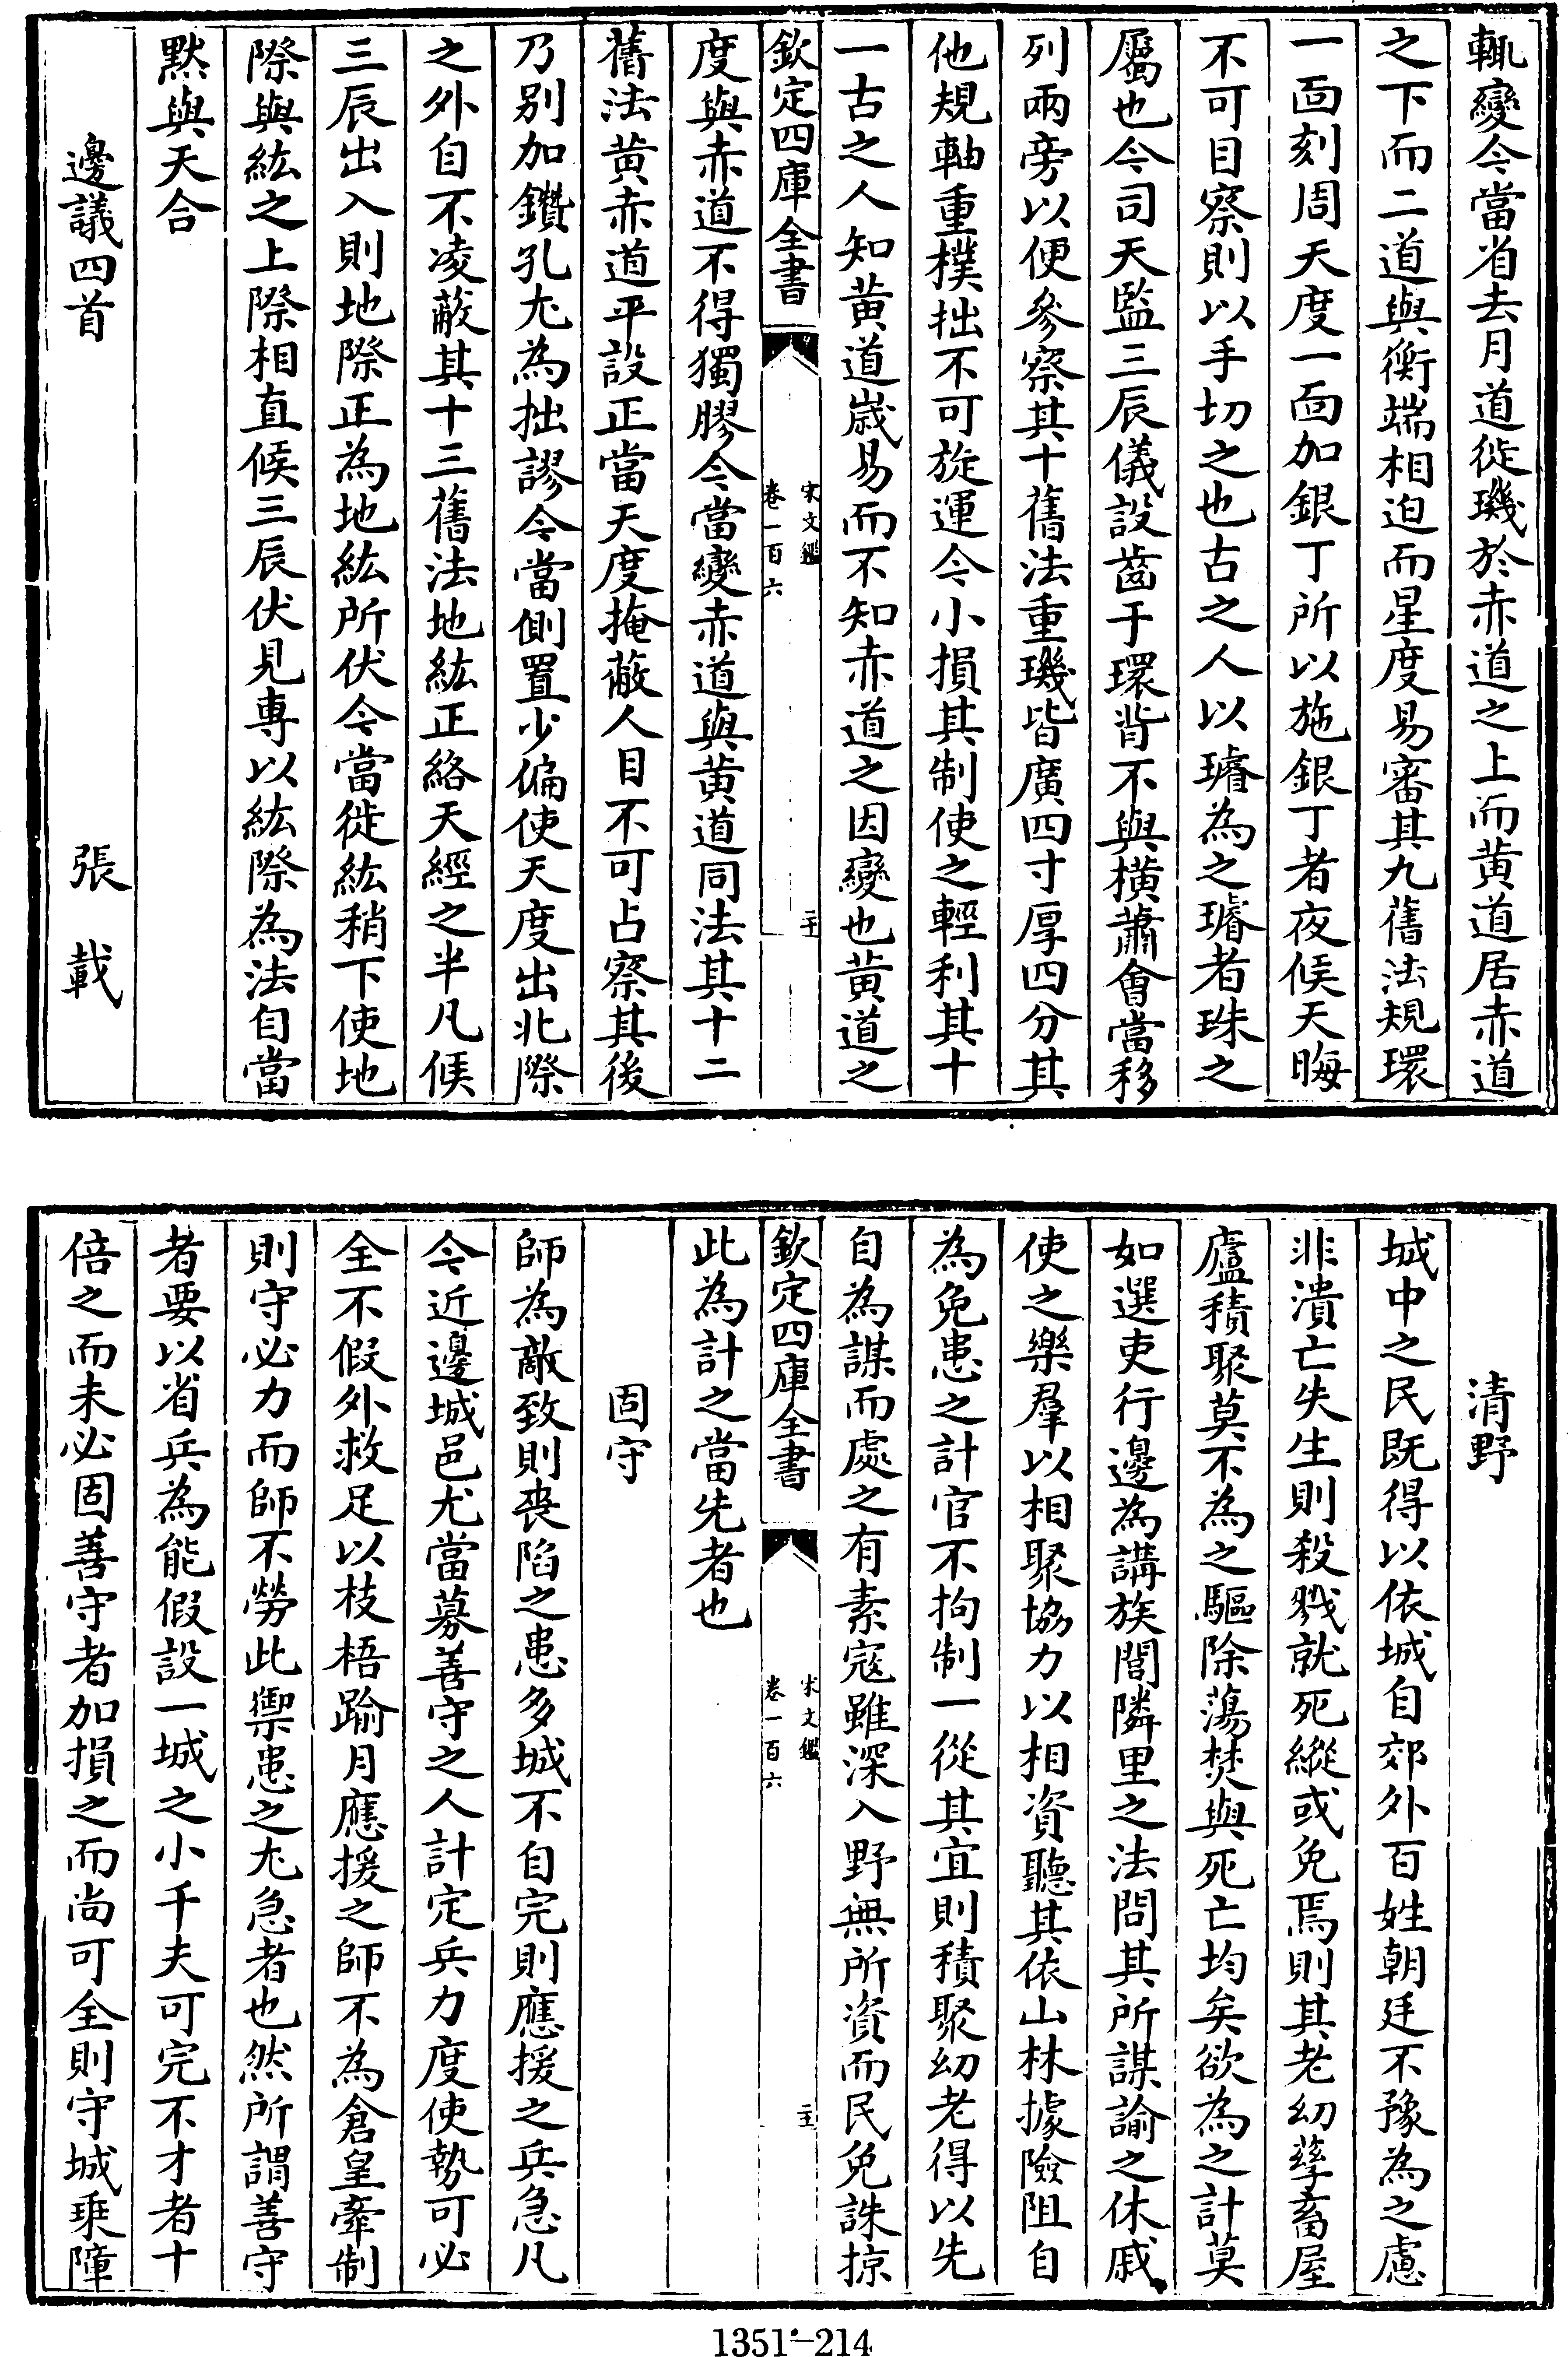 輒變今當省去月道徙璣於赤道之上而黄道居赤道
之下而二道與衡端相迫而星度易審其九舊法規環
一面刻周天度一面加銀丁所以施銀丁者夜候天晦
不可目察則以手切之也古之人以璿為之璿者珠之
屬也今司天監三辰儀設齒于環背不與横蕭會當移
列兩旁以便參察其十舊法重璣皆廣四寸厚四分其
他規軸重樸拙不可旋運今小損其制使之輕利其十
一古之人知黄道歳易而不知赤道之因變也黄道之
欽定四庫全書
宋文鑑
卷一百六
二十
度與赤道不得獨膠今當變赤道與黄道同法其十二
舊法黄赤道平設正當天度掩蔽人目不可占察其後
乃别加鑽孔尤為拙謬今當側置少偏使天度出北際
之外自不凌蔽其十三舊法地紘正絡天經之半凡候
三辰出入則地際正為地紘所伏今當徙紘稍下使地
際與紘之上際相直候三辰伏見專以紘際為法自當
黙與天合
邊議四首
張載
清野
城中之民既得以依城自郊外百姓朝廷不豫為之慮
非潰亡失生則殺戮就死縱或免焉則其老幼孳畜屋
廬積聚莫不為之驅除蕩焚與死亡均矣欲為之計莫
如選吏行邊為講族閭隣里之法問其所謀諭之休戚
使之樂羣以相聚協力以相資聽其依山林據險阻自
為免患之計官不拘制一從其宜則積聚幼老得以先
自為謀而處之有素寇雖深入野無所資而民免誅掠
欽定四庫全書
宋文鑑
卷一百六
二主
此為計之當先者也
固守
師為敵致則喪陷之患多城不自完則應援之兵急凡
今近邊城邑尤當募善守之人計定兵力度使勢可必
全不假外救足以枝梧踰月應援之師不為倉皇牽制
則守必力而師不勞此禦患之尤急者也然所謂善守
者要以省兵為能假設一城之小千夫可完不才者十
倍之而未必固善守者加損之而尚可全則守城乗障
1351-214